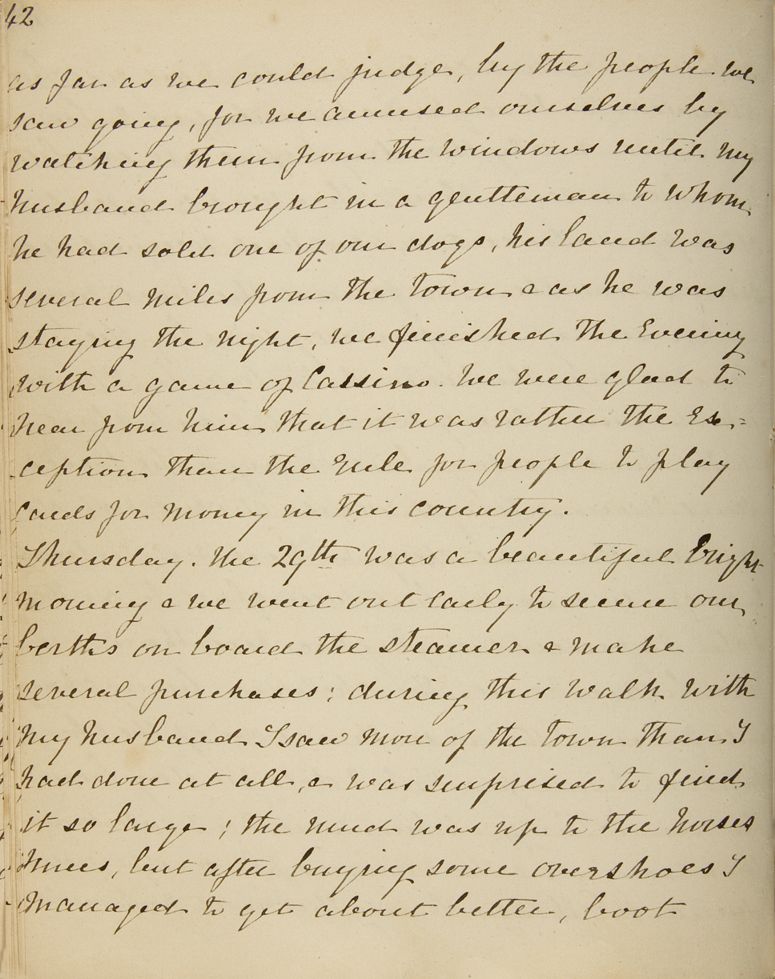 42
as far as we could judge, by the people we
saw going, for we amused ourselves by
watching them from the windows until my
husband brought in a gentleman to whom
he had sold one of our dogs, his land was
several miles from the town & as he was
staying the night, we finished the Evening
with a game of Cassino. We were glad to
hear from him that it was rather the Ex=
ception than the rule for people to play
Cards for money in this country.
Thursday. the 29th was a beautiful bright
morning & we went out early to secure our
berths on board the steamer & make
several purchases; during this walk with
my husband I saw more of the town than I
had done at all, & was surprised to find
it so large; the mud was up to the horses
knees, but after buying some overshoes I
managed to get about better, boot